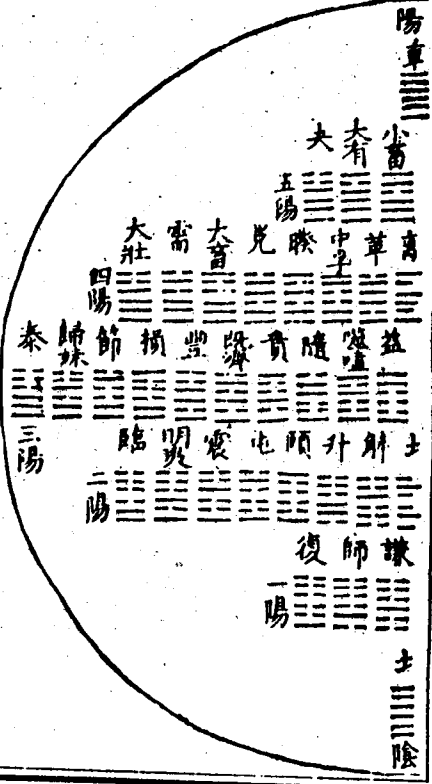 陽
小畜 大有 夬
五陽
革 中孚 睽 兌 大畜 需 大壯
四陽
益 噬嗑 隨 賁 既濟 豐 損 節 歸妹 泰
三陽
士 解 升 頤 屯 震 明夷 臨
二陽
謙 師 復
一陽
士
陰